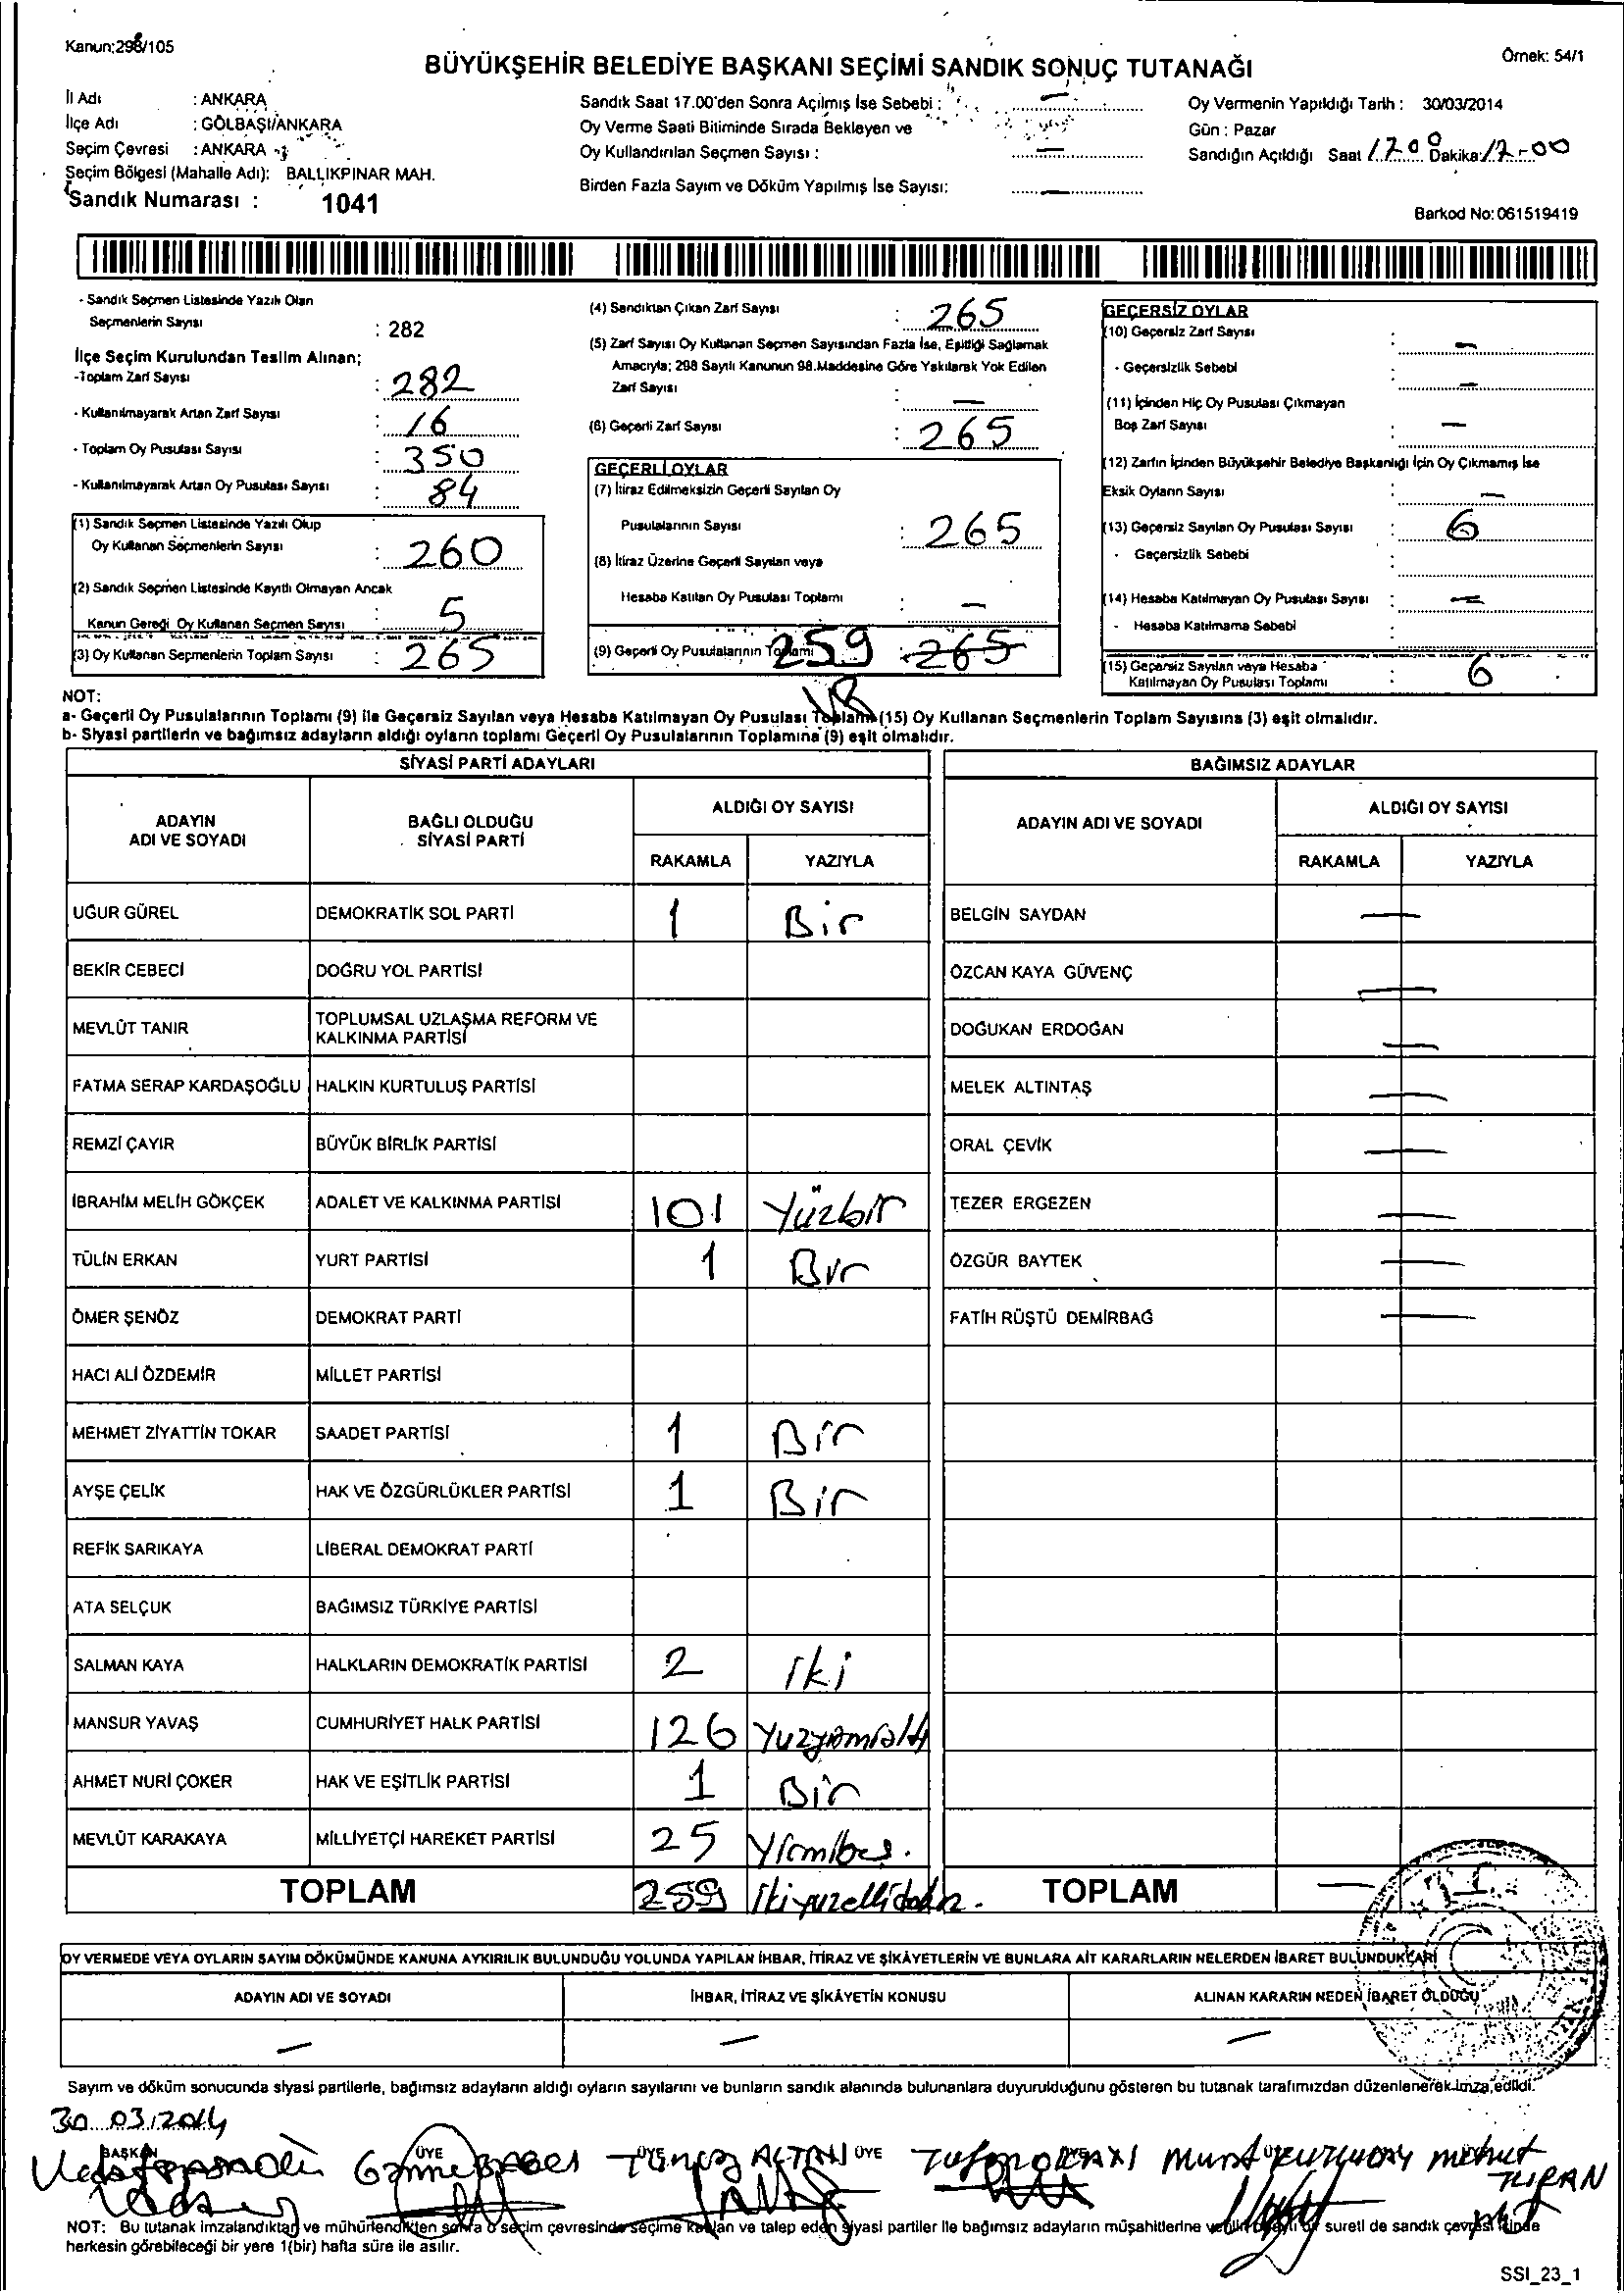 Kanun:298/105
BÜYÜKŞEHİR BELEDİYE BAŞKANI SEÇİMİ SANDIK SONUÇ TUTANAĞI
Örnek: 54/1
İl Adı : ANKARA
İlçe Adı : GÖLBAŞI/ANKARA
Seçim Çevresi : ANKARA
Seçim Bölgesi (Mahalle Adı): BALLIKPINAR MAH.
Sandık Numarası : 1041
Sandık Saat 17.00'den Sonra Açılmış İse Sebebi : —
Oy Verme Saati Bitiminde Sırada Bekleyen ve
Oy Kullandırılan Seçmen Sayısı : —
Birden Fazla Sayım ve Döküm Yapılmış İse Sayısı: —
Oy Vermenin Yapıldığı Tarih : 30/03/2014
Gün : Pazar
Sandığın Açıldığı Saat 1700 Dakika 17-00
Barkod No: 061519419
- Sandık Seçmen Listesinde Yazılı Olan
Seçmenlerin Sayısı : 282
İlçe Seçim Kurulundan Teslim Alınan;
-Toplam Zarf Sayısı : 282
- Kullanılmayarak Artan Zarf Sayısı : 16
- Toplam Oy Pusulası Sayısı : 350
- Kullanılmayarak Artan Oy Pusulası Sayısı : 84
(1) Sandık Seçmen Listesinde Yazılı Olup
Oy Kullanan Seçmenlerin Sayısı : 260
(2) Sandık Seçmen Listesinde Kayıtlı Olmayan Ancak
Kanun Gereği Oy Kullanan Seçmen Sayısı : 5
(3) Oy Kullanan Seçmenlerin Toplam Sayısı : 265
(4) Sandıktan Çıkan Zarf Sayısı : 265
(5) Zarf Sayısı Oy Kullanan Seçmen Sayısından Fazla İse, Eşitliği Sağlamak
Amacıyla; 298 Sayılı Kanunun 98.Maddesine Göre Yakılarak Yok Edilen
Zarf Sayısı : —
(6) Geçerli Zarf Sayısı : 265
GEÇERLİ OYLAR
(7) İtiraz Edilmeksizin Geçerli Sayılan Oy
Pusulalarının Sayısı : 265
(8) İtiraz Üzerine Geçerli Sayılan veya
Hesaba Katılan Oy Pusulası Toplamı : —
(9) Geçerli Oy Pusulalarının Toplamı 259 265
GEÇERSİZ OYLAR
(10) Geçersiz Zarf Sayısı : —
- Geçersizlik Sebebi : —
(11) İçinden Hiç Oy Pusulası Çıkmayan
Boş Zarf Sayısı : —
(12) Zarfın İçinden Büyükşehir Belediye Başkanlığı İçin Oy Çıkmamış İse
Eksik Oyların Sayısı : —
(13) Geçersiz Sayılan Oy Pusulası Sayısı : 6
- Geçersizlik Sebebi :
(14) Hesaba Katılmayan Oy Pusulası Sayısı : —
- Hesaba Katılmama Sebebi :
(15) Geçersiz Sayılan veya Hesaba
Katılmayan Oy Pusulası Toplamı : 6
NOT:
a- Geçerli Oy Pusulalarının Toplamı (9) ile Geçersiz Sayılan veya Hesaba Katılmayan Oy Pusulası Toplamı (15) Oy Kullanan Seçmenlerin Toplam Sayısına (3) eşit olmalıdır.
b- Siyasi partilerin ve bağımsız adayların aldığı oyların toplamı Geçerli Oy Pusulalarının Toplamına (9) eşit olmalıdır.
SİYASİ PARTİ ADAYLARI
BAĞIMSIZ ADAYLAR
ADAYIN ADI VE SOYADI
BAĞLI OLDUĞU SİYASİ PARTİ
ALDIĞI OY SAYISI
RAKAMLA YAZIYLA
ADAYIN ADI VE SOYADI
ALDIĞI OY SAYISI
RAKAMLA YAZIYLA
UĞUR GÜREL DEMOKRATİK SOL PARTİ 1 Bir BELGİN SAYDAN —
BEKİR CEBECİ DOĞRU YOL PARTİSİ ÖZCAN KAYA GÜVENÇ —
MEVLÜT TANIR TOPLUMSAL UZLAŞMA REFORM VE KALKINMA PARTİSİ DOĞUKAN ERDOĞAN —
FATMA SERAP KARDAŞOĞLU HALKIN KURTULUŞ PARTİSİ MELEK ALTINTAŞ —
REMZİ ÇAYIR BÜYÜK BİRLİK PARTİSİ ORAL ÇEVİK —
İBRAHİM MELİH GÖKÇEK ADALET VE KALKINMA PARTİSİ 101 Yüzbir TEZER ERGEZEN —
TÜLİN ERKAN YURT PARTİSİ 1 Bir ÖZGÜR BAYTEK —
ÖMER ŞENÖZ DEMOKRAT PARTİ FATİH RÜŞTÜ DEMİRBAĞ —
HACI ALİ ÖZDEMİR MİLLET PARTİSİ
MEHMET ZİYATTİN TOKAR SAADET PARTİSİ 1 Bir
AYŞE ÇELİK HAK VE ÖZGÜRLÜKLER PARTİSİ 1 Bir
REFİK SARIKAYA LİBERAL DEMOKRAT PARTİ
ATA SELÇUK BAĞIMSIZ TÜRKİYE PARTİSİ
SALMAN KAYA HALKLARIN DEMOKRATİK PARTİSİ 2 iki
MANSUR YAVAŞ CUMHURİYET HALK PARTİSİ 126 Yuzyirmialtı
AHMET NURİ ÇOKER HAK VE EŞİTLİK PARTİSİ 1 Bir
MEVLÜT KARAKAYA MİLLİYETÇİ HAREKET PARTİSİ 25 Yirmibeş.
TOPLAM 259 ikiyuzellidokuz. TOPLAM —
OY VERMEDE VEYA OYLARIN SAYIM DÖKÜMÜNDE KANUNA AYKIRILIK BULUNDUĞU YOLUNDA YAPILAN İHBAR, İTİRAZ VE ŞİKÂYETLERİN VE BUNLARA AİT KARARLARIN NELERDEN İBARET BULUNDUKLARI
ADAYIN ADI VE SOYADI İHBAR, İTİRAZ VE ŞİKÂYETİN KONUSU ALINAN KARARIN NEDEN İBARET OLDUĞU
— — —
Sayım ve döküm sonucunda siyasi partilerle, bağımsız adayların aldığı oyların sayılarını ve bunların sandık alanında bulunanlara duyurulduğunu gösteren bu tutanak tarafımızdan düzenlenerek imza edildi.
30.03.2014
BAŞKAN ÜYE ÜYE ÜYE ÜYE ÜYE
ALTAN Murat Mehmet TURAN
NOT: Bu tutanak imzalandıktan ve mühürlendikten sonra o seçim çevresinde seçime katılan ve talep eden siyasi partiler ile bağımsız adayların müşahitlerine verilir. sureti de sandık çevresi içinde
herkesin görebileceği bir yere 1(bir) hafta süre ile asılır.
SSI_23_1